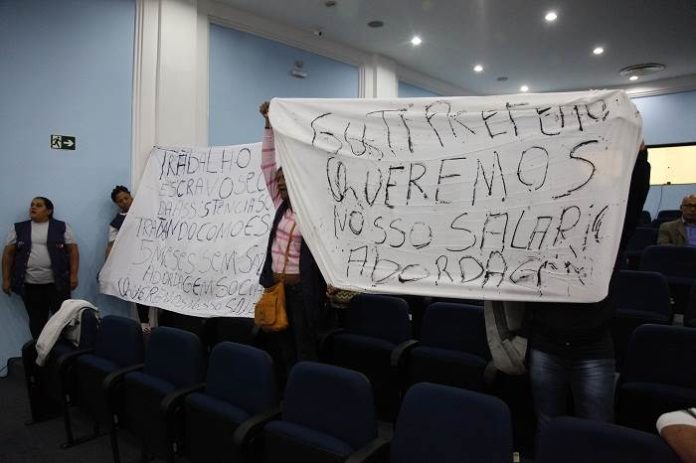 TRABALHO
ESCRAVO SEC
DA ASSISTENCIA S
TRABANDO COMO ES
5 MESES SEM SA
ABORDAGEM SOC
QUEREMOS NOSSO
GUTI PREFEITO
QUEREMOS
NOSSO SALARIO
ABORDAGEM